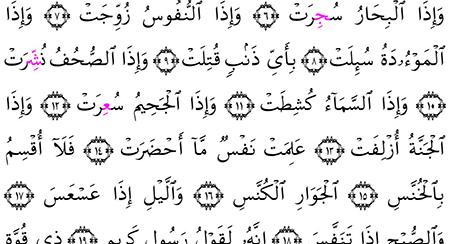 وَإِذَا ٱلْبِحَارُ سُجِرَتْ ﴿٦﴾ وَإِذَا ٱلنُّفُوسُ زُوِّجَتْ ﴿٧﴾ وَإِذَا
ٱلْمَوْءُۥدَةُ سُئِلَتْ ﴿٨﴾ بِأَىِّ ذَنۢبٍ قُتِلَتْ ﴿٩﴾ وَإِذَا ٱلصُّحُفُ نُشِّرَتْ
﴿١٠﴾ وَإِذَا ٱلسَّمَآءُ كُشِطَتْ ﴿١١﴾ وَإِذَا ٱلْجَحِيمُ سُعِرَتْ ﴿١٢﴾ وَإِذَا
ٱلْجَنَّةُ أُزْلِفَتْ ﴿١٣﴾ عَلِمَتْ نَفْسٌ مَّآ أَحْضَرَتْ ﴿١٤﴾ فَلَآ أُقْسِمُ
بِٱلْخُنَّسِ ﴿١٥﴾ ٱلْجَوَارِ ٱلْكُنَّسِ ﴿١٦﴾ وَٱلَّيْلِ إِذَا عَسْعَسَ ﴿١٧﴾
وَٱلصُّبْحِ إِذَا تَنَفَّسَ ﴿١٨﴾ إِنَّهُۥ لَقَوْلُ رَسُولٍ كَرِيمٍ ﴿١٩﴾ ذِى قُوَّةٍ